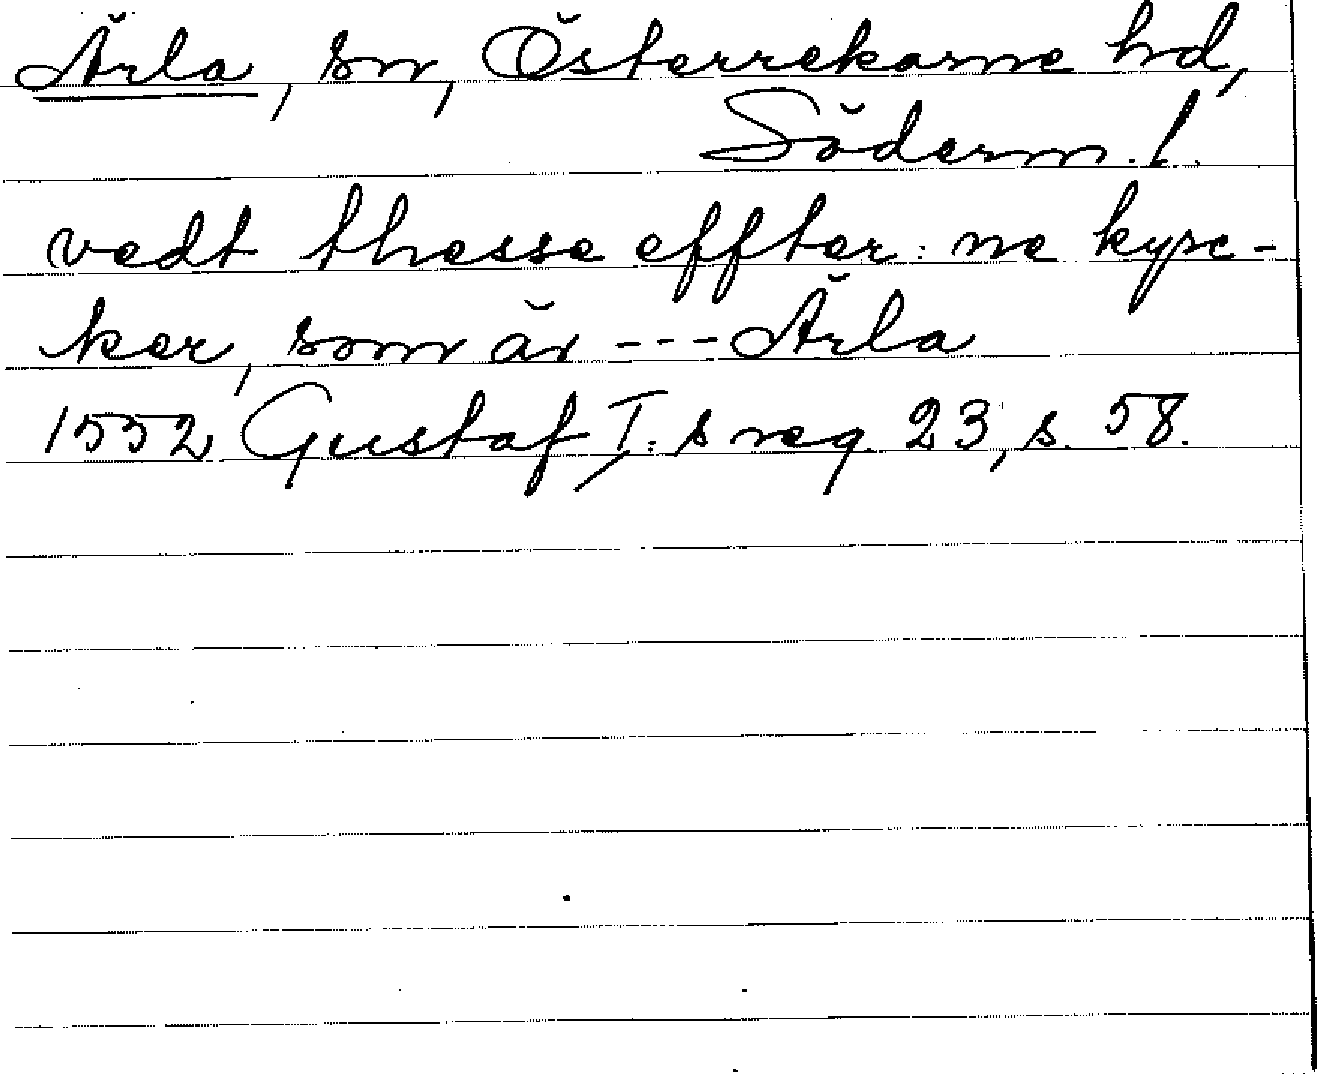 Ärla, sn, Österrekarne hd,
Söderm. l.
vedt thesse effter: ne kyrc-
ker, som är --- Ärla
1552 Gustaf I:s reg. 23, s. 58.